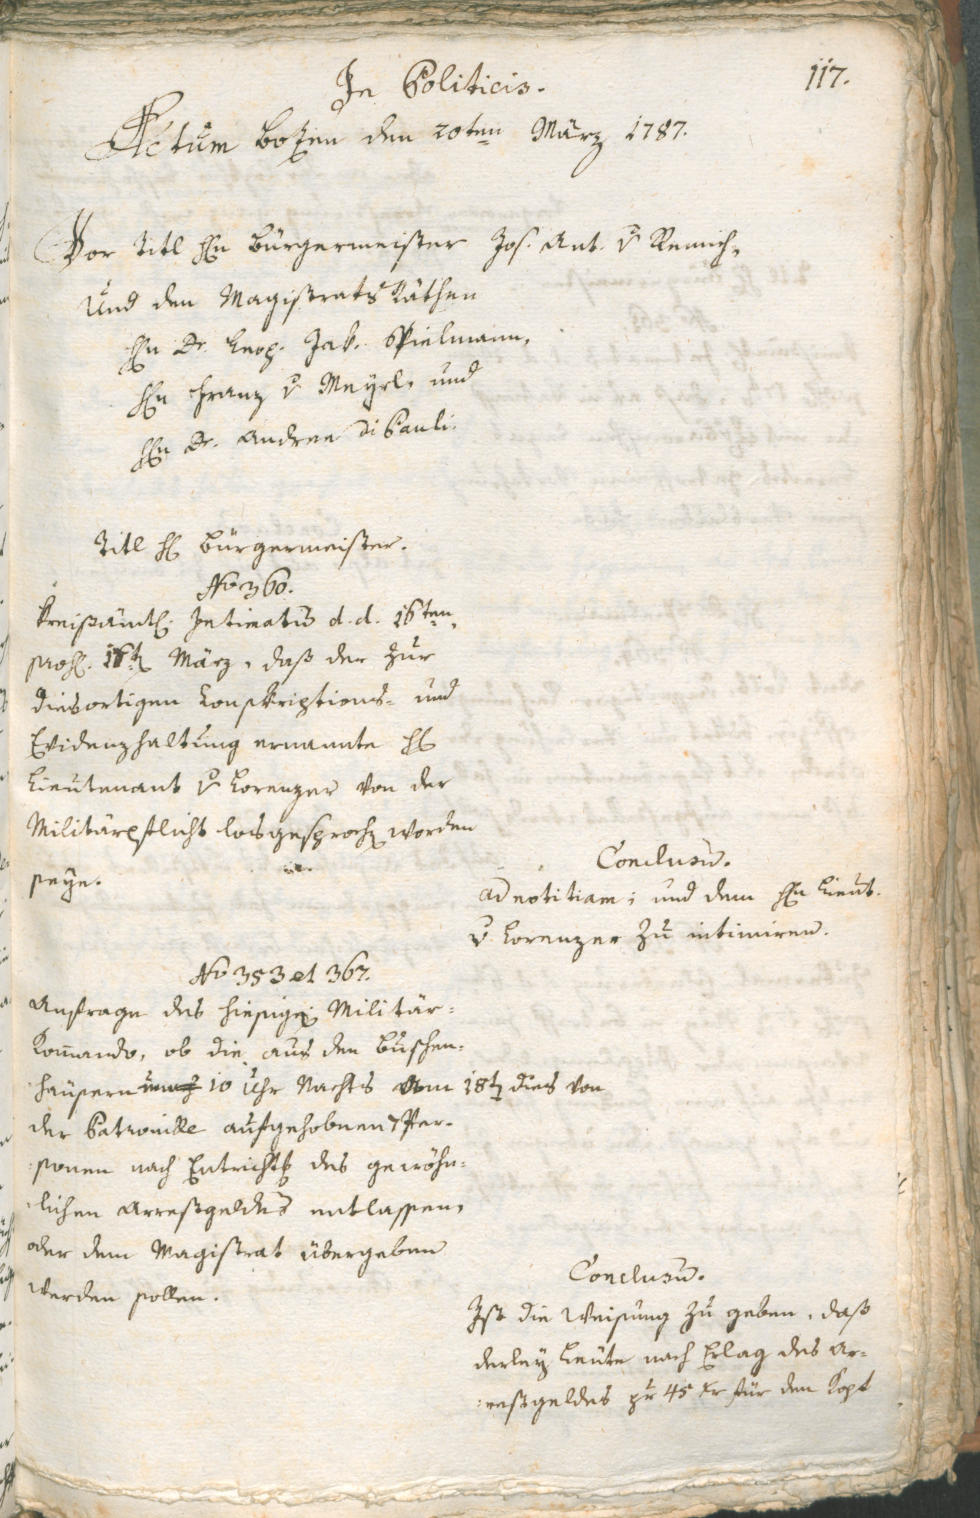 In Politicis.
117.
Actum Botzen den 20ten März 1787.
Vor Titl Hn Bürgermeister Jos. Ant. v Remich,
Und den Magistrats Räthen
Hn Dr. Leop. Jak. Spielmann,
Hn Franz v Meyrl, und
Hn Dr. Andree Di Pauli.
Titl H Bürgermeister.
No 360.
Kreißämtl. Intimatū d. d. 16ten,
März, daß der zur
diesortigen Konskriptions- und
Evidenzhaltung ernannte H
Lieutenant v Lorenzer von der
Militärpflicht losgesproch worden
seye.
Conclusū.
ad notitiam; und dem Hn Lieut.
v Lorenzer zu intimiren.
No 353 et 367.
Anfrage des hiesigen Militär-
Kom̄ando, ob die aus den Buschen-
häusern 10 Uhr Nachts am 18t dies von
der Patrouille aufgehobnen 7 Per-
sonen nach Enrichtg des gewöhn-
lichen Arrestgeldes entlassen,
oder dem Magistrat übergeben
werden sollen.
Conclusū.
Ist die Weisung zu geben, daß
derley Leute nach Erlag des Ar-
restgeldes pr 45 kr für den Kopf